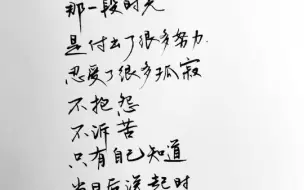 那一段时光
是付出了很多努力
忍受了很多孤寂
不抱怨
不诉苦
只有自己知道
当日后说起时